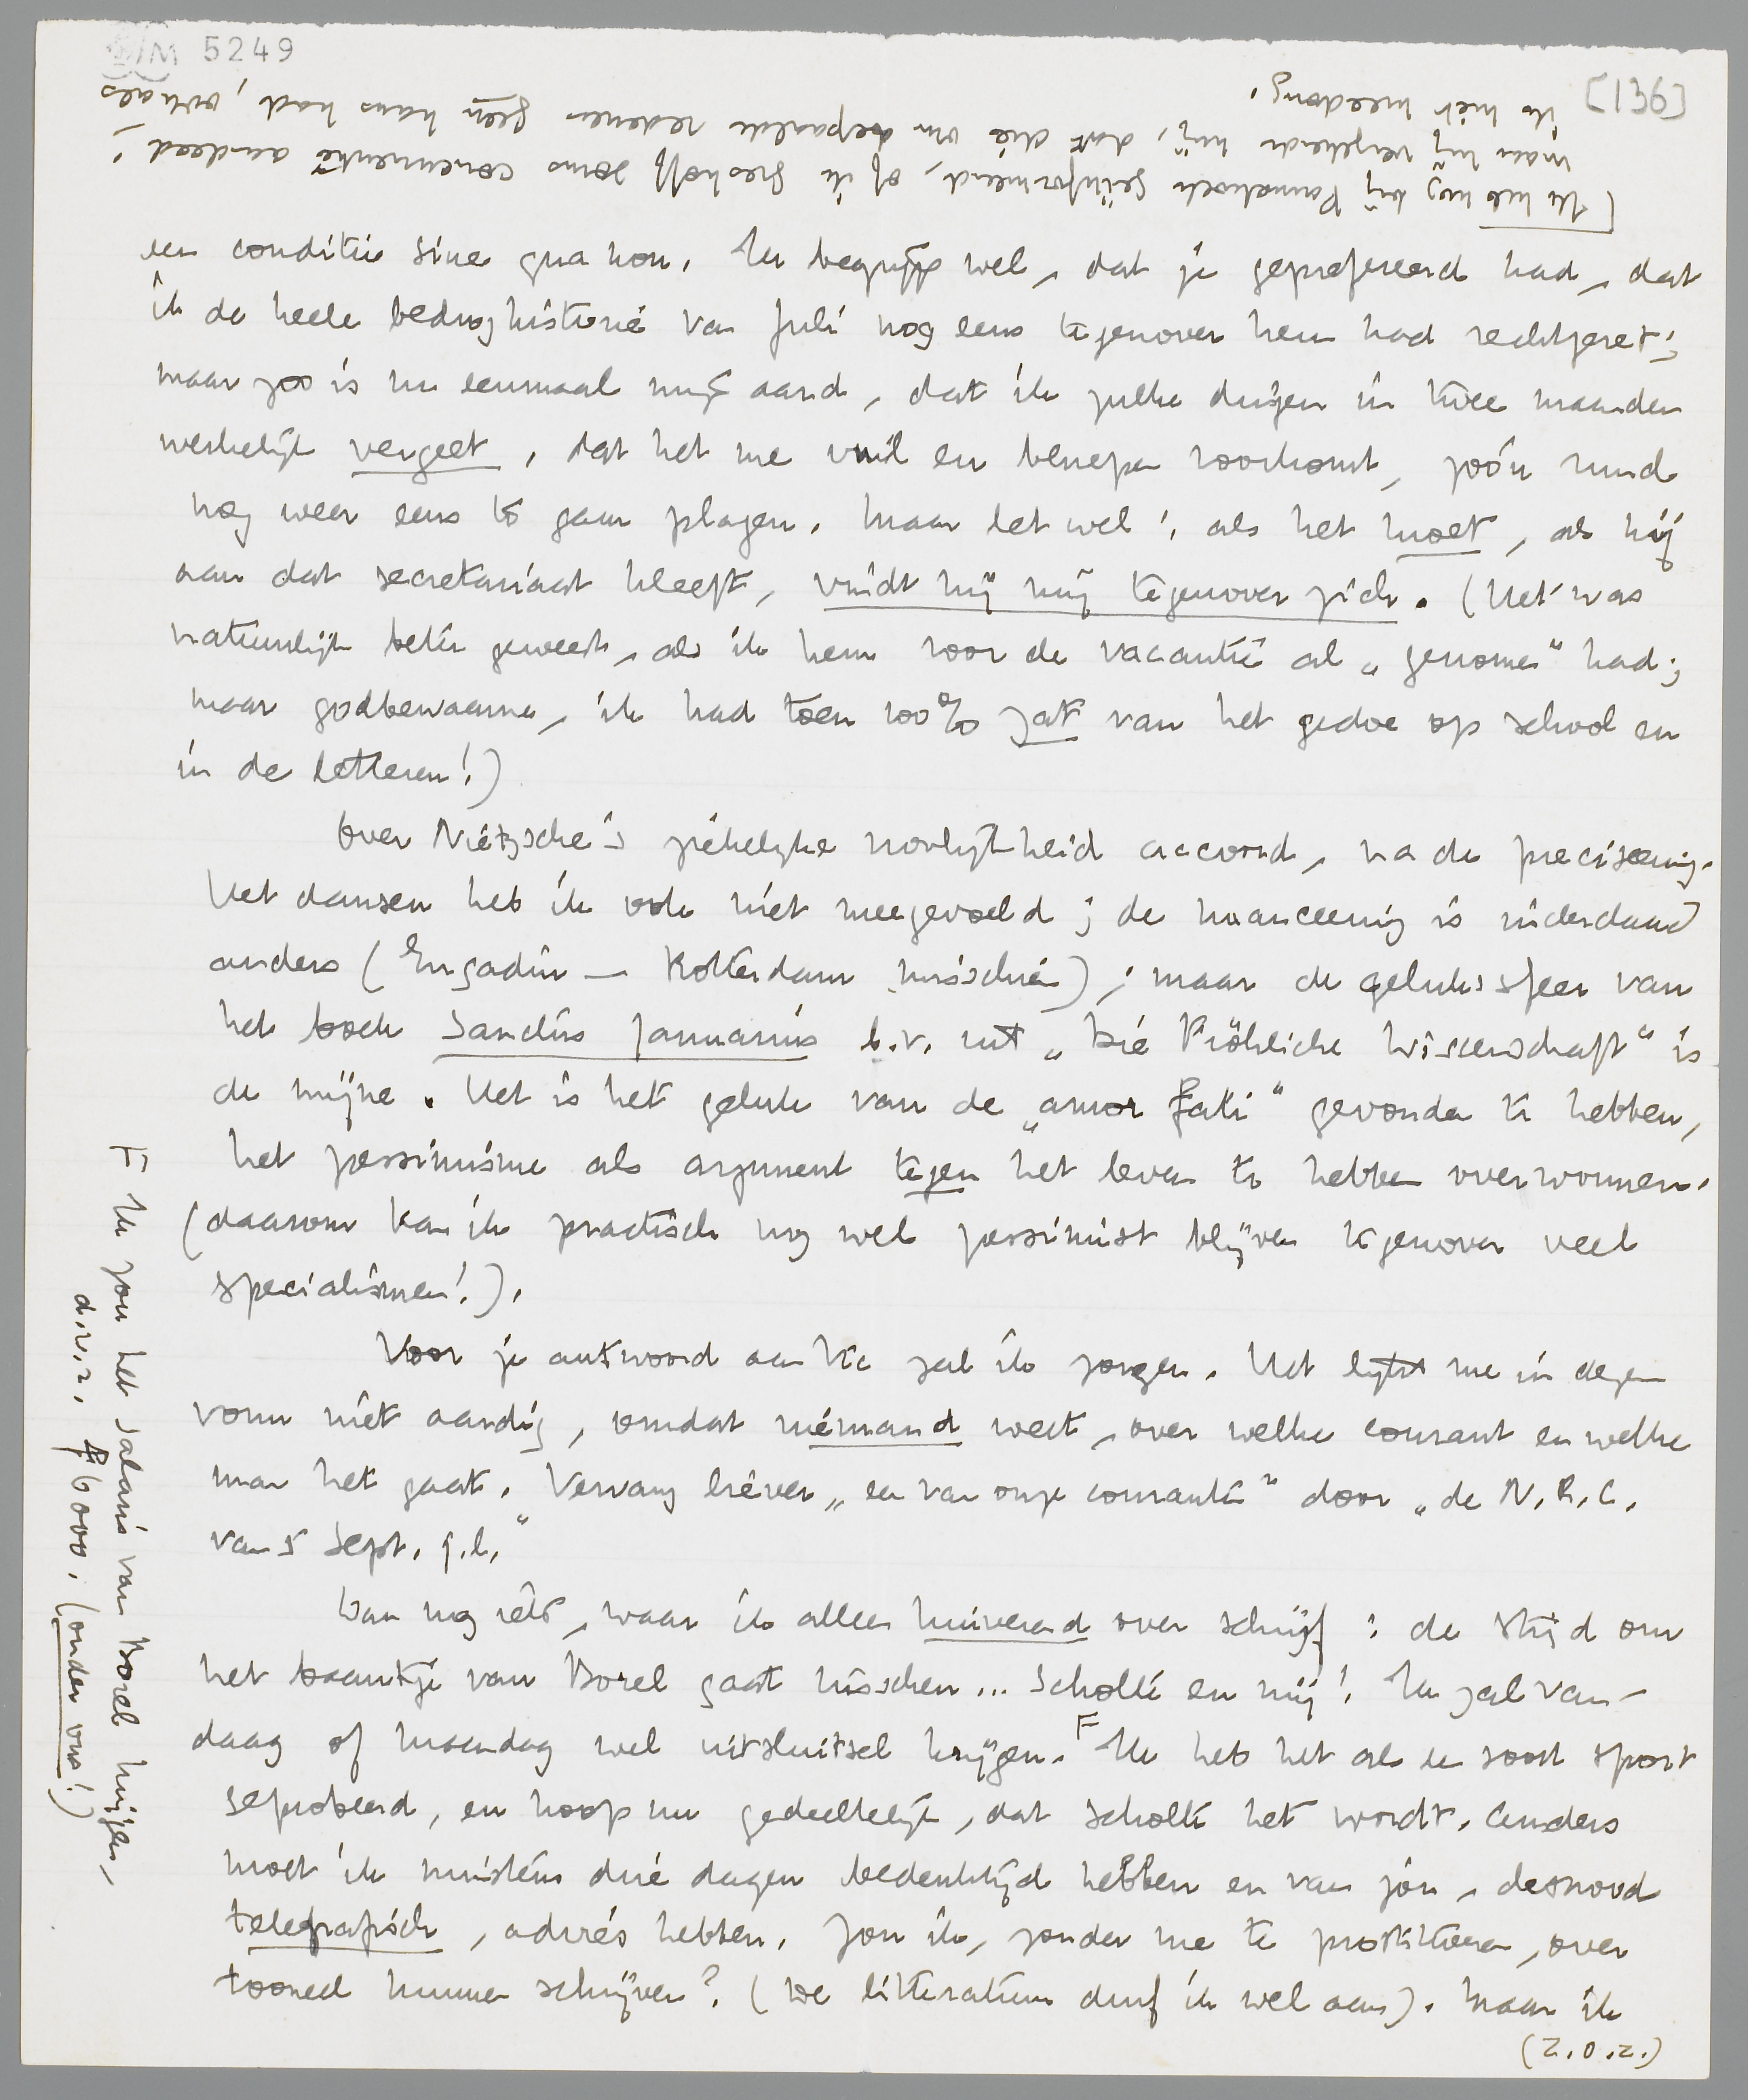 5249
[136]
[Ik heb nog bij Pannekoek geïnformeerd, of ik Greshoff soms concurrentie aandeed!
maar hij verzekerde mij, dat die om bepaalde redenen geen kans had, ook als
ik niet meedong.
een conditie sine qua non. Ik begrijp wel, dat je geprefereerd had, dat
ik de heele bedroghistorie van Juli nog eens tegenover hem had rechtgezet;
maar zoo is nu eenmaal mijn aard, dat ik zulke dingen in twee maanden
werkelijk vergeet, dat het me vuil en benepen voorkomt, zóó'n rund
nog weer eens te gaan plagen. Maar let wel!, als het moet, als hij
aan dat secretariaat kleeft, vindt hij mij tegenover zich. (Het was
natuurlijk beter geweest, als ik hem voor de vacantie al „genomen” had;
maar godbewaarme, ik had toen 100% zat van het gedoe op school en
in de letteren!)
Over Nietzsche's ziekelijke vroolijkheid accoord, na de preciseering.
Het dansen heb ik ook niet meegevoeld; de nuanceering is inderdaad
anders (Engadin — Rotterdam misschien); maar de geluks sfeer van
het boek Sanctus Januarius b.v. uit „Die Fröhliche Wissenschaft” is
de mijne. Het is het geluk van de „amor fati” gevonden te hebben,
het pessimisme als argument tegen het leven te hebben overwonnen.
(daarom kan ik practisch nog wel pessimist blijven tegenover veel
specialismen!).
Voor je antwoord aan zal ik zorgen. Het lijkt me in dezen
vorm niet aardig, omdat niemand weet, over welke courant en welke
man het gaat. Vervang liever „een van onze couranten” door „de N.R.C.
van 5 Sept. j.l.”
Dan nog iets, waar ik alleen huiverend over schrijf: de strijd om
het baantje van Borel gaat tusschen... Scholte en mij! Ik zal van-
daag of Maandag wel uitsluitsel krijgen. F Ik heb het als een soort sport
geprobeerd, en hoop nu gedeeltelijk, dat Scholte het wordt. Anders
moet ik minstens drie dagen bedenktijd hebben en van jou, desnoods
telegrafisch, advies hebben. Zou ik, zonder me te prostitueeren, over
tooneel kunnen schrijven? (De litteratuur durf ik wel aan). Maar ik
(Z.O.Z.)
F Ik zou het salaris van Borel krijgen,
d.w.z. ƒ 6000. (onder ons!)